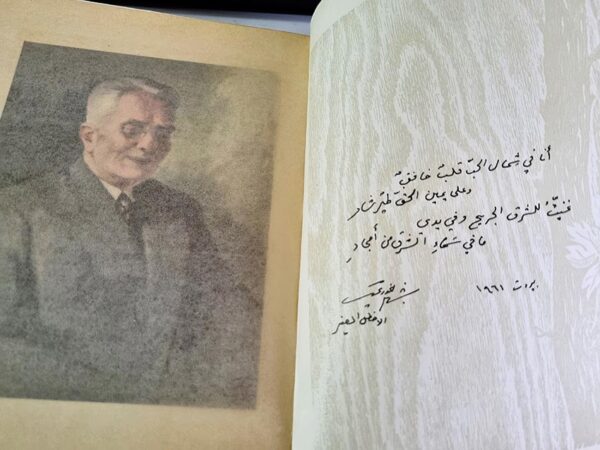 أنا في شمال الحبّ قلبٌ خافقٌ
وعلى يمين الحقّ طير شاد
غنيتُ للشرق الجريح وفي يدي
ما في سماءِ الشرق من أمجادِ
بيروت ١٩٦١
الأخطل الصغير